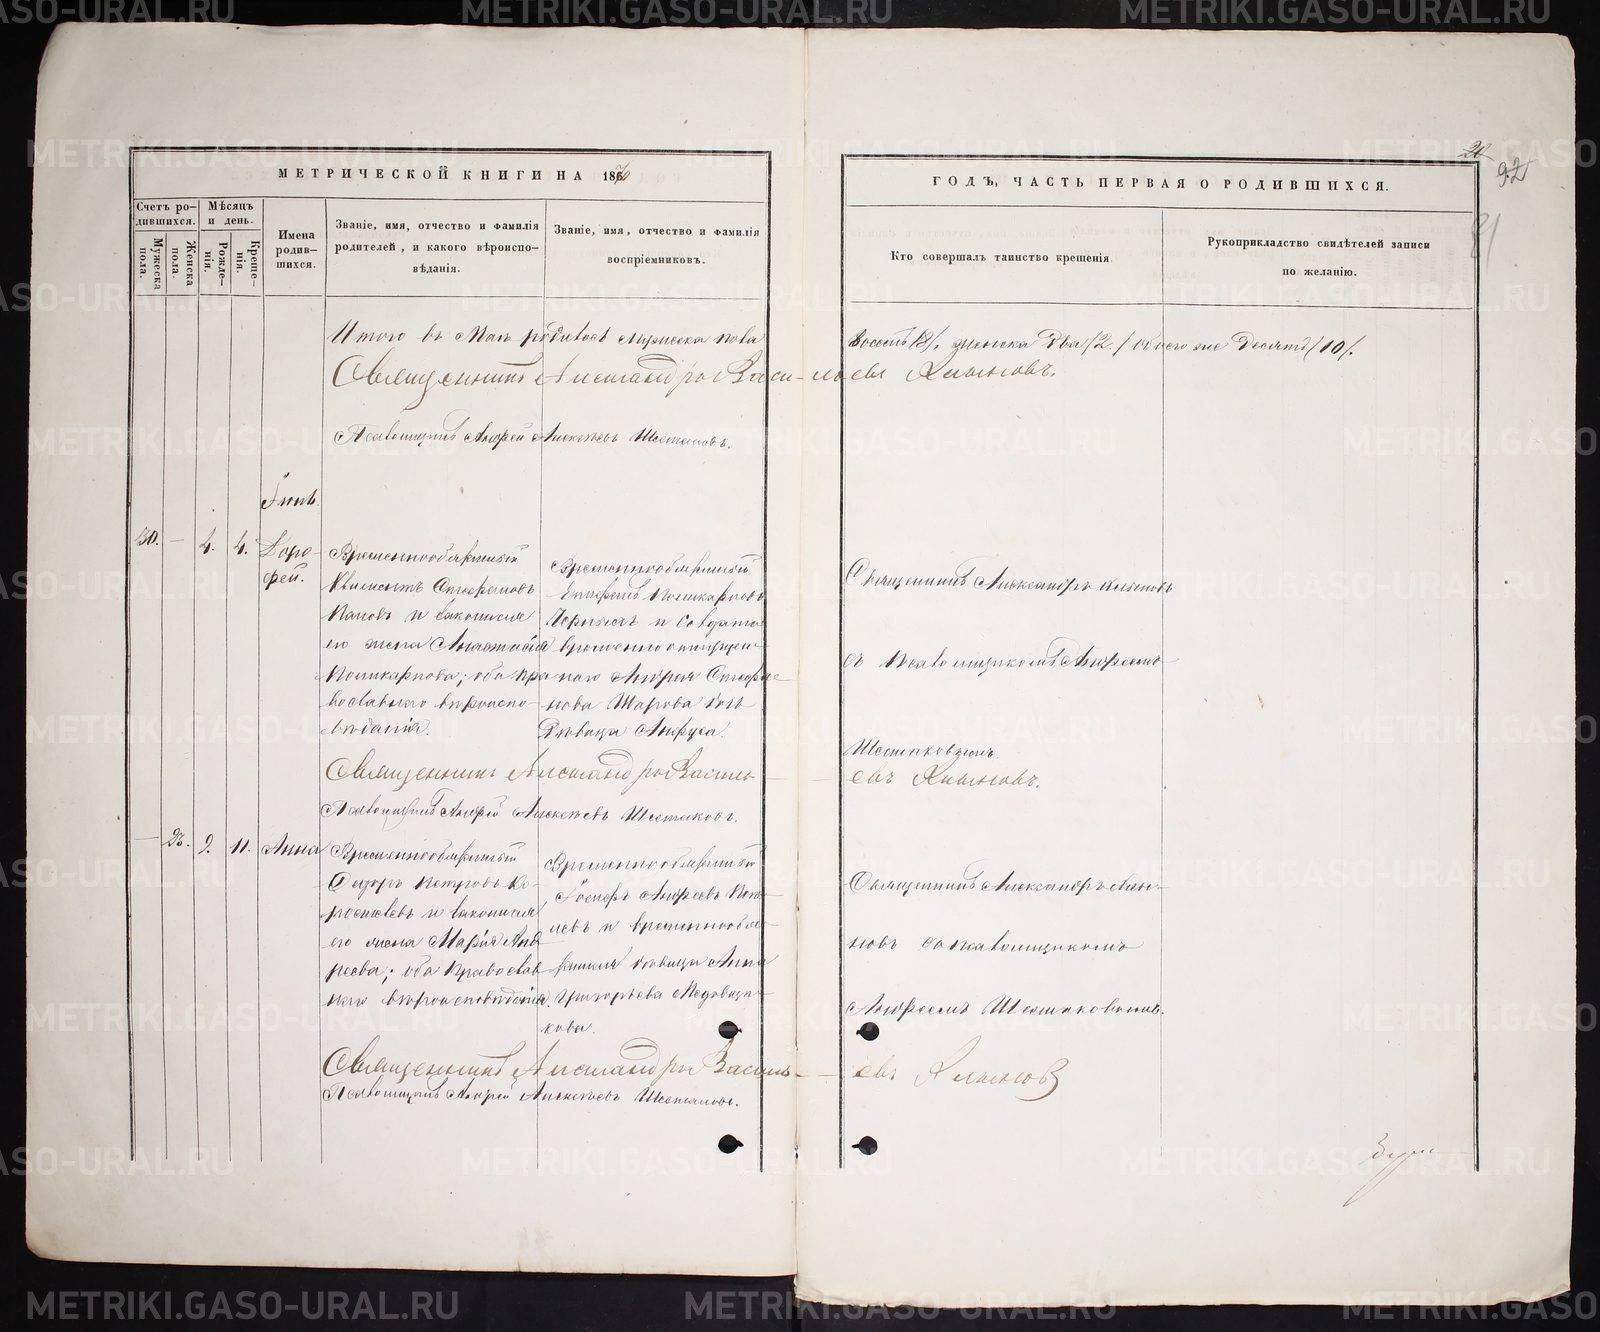 МЕТРИЧЕСКОЙ КНИГИ НА 1870
ГОДЪ, ЧАСТЬ ПЕРВАЯ О РОДИВШИХСЯ.
92
Счетъ ро-
дившихся.
Мужеска пола.
Женска пола.
Мѣсяцъ и день.
Рожде-
нія.
Креще-
нія.
Имена
родив-
шихся.
Званіе, имя, отчество и фамилія
родителей, и какого вѣроиспо-
вѣданія.
Званіе, имя, отчество и фамилія
воспріемниковъ.
Кто совершалъ таинство крещенія.
Рукоприкладство свидѣтелей записи
по желанію.
Итого въ Маѣ родилось мужеска пола
восемь /8/. женска два /2./ обоего же десять /10/.
Священникъ Александръ Василь-евъ
Псаломщикъ Андрей Алексѣевъ Шестаковъ.
Іюнь
30. — 4. 4. Доро-
фей.
Временнообязанный
Стефановъ
Пановъ и законная
его жена Анастасія
Поликарпова; оба пра-
вославнаго вѣроиспо-
вѣданія.
Временнообязанный
Поликарповъ
и солдата
временно отпущен-
наго Андрея Стефа-
нова Шарова дочь
дѣвица
Священникъ Александръ
съ псаломщикомъ Андреемъ
Шестаковымъ.
Священникъ Александръ Василь-
евъ
Псаломщикъ Андрей Алексѣевъ Шестаковъ.
— 23. 9. 11. Анна
Временнообязанный
Сидоръ Петровъ Ко-
и законная
его жена Марія Анд-
реева; оба православ-
наго вѣроисповѣданія.
Временнообязанный
Андреевъ
и временнообя-
занная дѣвица Анна
Григорьева Медовщи-
кова.
Священникъ Александръ
новъ съ псаломщикомъ
Андреемъ Шестаковымъ.
Священникъ Александръ Василь-
евъ
Псаломщикъ Андрей Алексѣевъ Шестаковъ.
METRIKI.GASO-URAL.RU